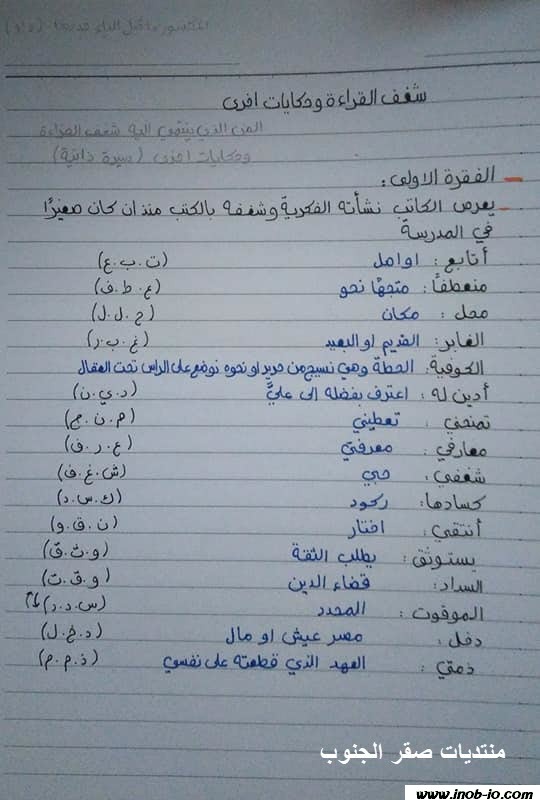 المكسور ما قبل الياء قدرها (د/و)
شغف القراءة وحكايات اخرى
الفن الذي ينتمي اليه شغف القراءة
وحكايات اخرى (سيرة ذاتية)
– الفقرة الاولى:
– يعرض الكاتب نشأته الفكرية وشغفه بالكتب منذ ان كان صغيرًا
في المدرسة
أتابع: اواصل (ت.ب.ع)
منعطفاً: متجهًا نحو (ع.ط.ف)
محل: مكان (ح.ل.ل)
الغابر: القديم او البعيد (غ.ب.ر)
الكوفية: الحطة وهي نسيج من حرير او نحوه توضع على الراس تحت العقال
أدين له: اعترف بفضله الى عليَّ (د.ي.ن)
تمنحني: تعطيني (م.ن.ح)
معارفي: معرفتي (ع.ر.ف)
شغفي: حبي (ش.غ.ف)
كسادها: ركود (ك.س.د)
أنتقي: اختار (ن.ق.و)
يستوثق: يطلب الثقة (و.ث.ق)
السداد: قضاء الدين (و.ق.ت)
الموقوت: المحدد (س.د.د)
دخل: مصر عيش او مال (د.خ.ل)
ذمتي: العهد الذي قطعته على نفسي (ذ.م.م)
منتديات صقر الجنوب
www.inob-io.com